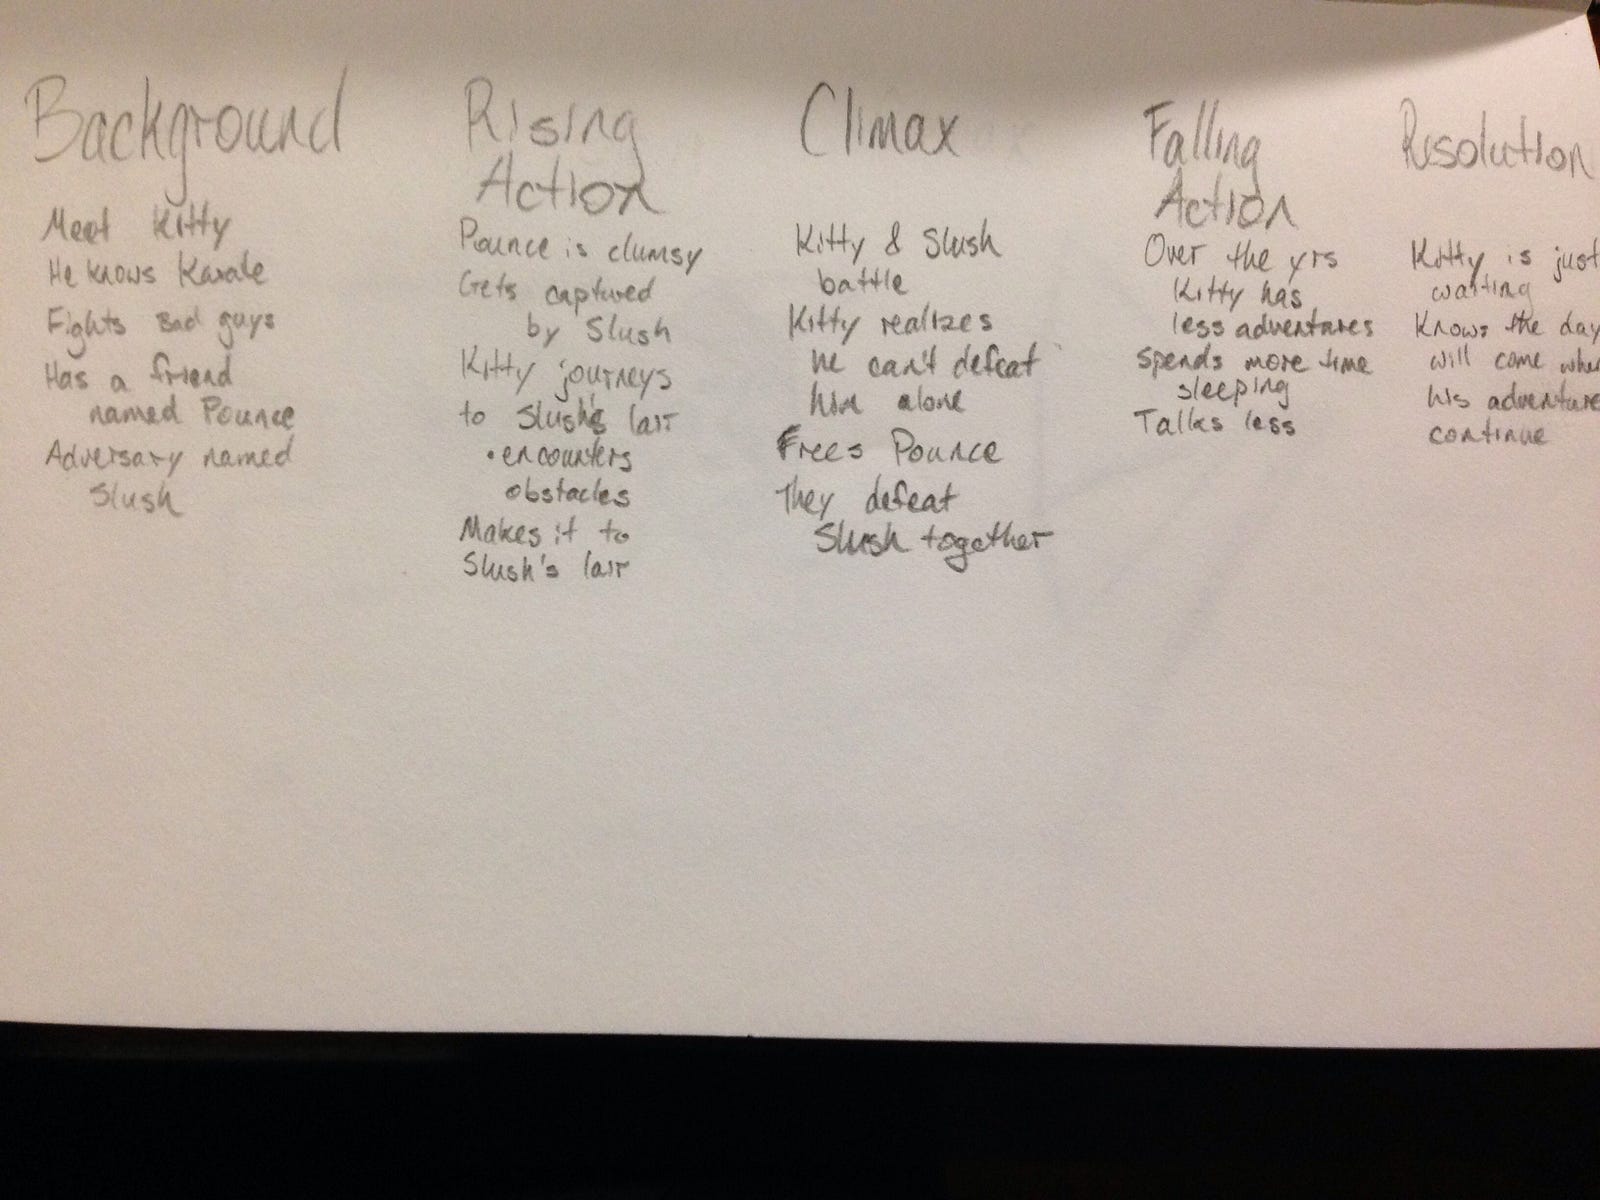 Background
Meet Kitty
He knows Karate
Fights Bad guys
Has a friend
named Pounce
Adversary named
Slush
Rising
Action
Pounce is clumsy
Gets captured
by Slush
Kitty journeys
to Slush's lair
• encounters
obstacles
Makes it to
Slush's lair
Climax
Kitty & Slush
battle
Kitty realizes
he can't defeat
him alone
Frees Pounce
They defeat
Slush together
Falling
Action
Over the yrs
Kitty has
less adventures
spends more time
sleeping
Talks less
Resolution
Kitty is just
waiting
Knows the day
will come when
his adventure
continue